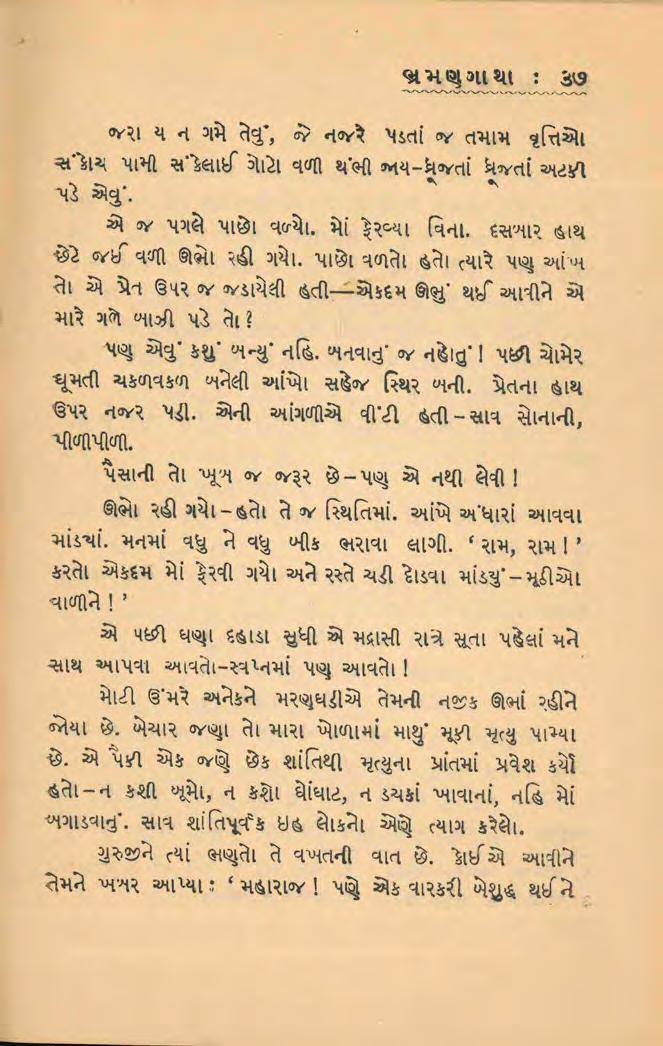 ભ્રમણગાથા : ૩૭
જરા ય ન ગમે તેવું, જે નજરે પડતાં જ તમામ વૃત્તિઓ
સંકોચ પામી સંકેલાઈ ગોટો વળી થંભી જાય–ધ્રૂજતાં ધ્રૂજતાં અટકી
પડે એવું.
એ જ પગલે પાછો વળ્યો. મોં ફેરવ્યા વિના. દસબાર હાથ
છેટે જઈ વળી ઊભો રહી ગયો. પાછો વળતો હતો ત્યારે પણ આંખ
તો એ પ્રેત ઉપર જ જડાયેલી હતી—એકદમ ઊભું થઈ આવીને એ
મારે ગળે બાઝી પડે તો?
પણ એવું કશું બન્યું નહિ. બનવાનું જ નહોતું! પછી ચોમેર
ઘૂમતી ચકળવકળ બનેલી આંખો સહેજ સ્થિર બની. પ્રેતના હાથ
ઉપર નજર પડી. એની આંગળીએ વીંટી હતી – સાવ સોનાની,
પીળીપીળી.
પૈસાની તો ખૂબ જ જરૂર છે – પણ એ નથી લેવી!
ઊભો રહી ગયો – હતો તે જ સ્થિતિમાં. આંખે અંધારાં આવવા
માંડ્યાં. મનમાં વધુ ને વધુ બીક ભરાવા લાગી. ‘રામ, રામ!’
કરતો એકદમ મોં ફેરવી ગયો અને રસ્તે ચડી દોડવા માંડ્યું – મૂઠીઓ
વાળીને!’
એ પછી ઘણા દહાડા સુધી એ મદ્રાસી રાત્રે સૂતા પહેલાં મને
સાથ આપવા આવતો–સ્વપ્નમાં પણ આવતો!
મોટી ઉંમરે અનેકને મરણઘડીએ તેમની નજીક ઊભાં રહીને
જોયા છે. બેચાર જણા તો મારા ખોળામાં માથું મૂકી મૃત્યુ પામ્યા
છે. એ પૈકી એક જણે છેક શાંતિથી મૃત્યુના પ્રાંતમાં પ્રવેશ કર્યો
હતો – ન કશી બૂમો, ન કશો ઘોંઘાટ, ન ડચકાં ખાવાનાં, નહિ મોં
બગાડવાનું. સાવ શાંતિપૂર્વક ઇહ લોકનો એણે ત્યાગ કરેલો.
ગુરુજીને ત્યાં ભણતો તે વખતની વાત છે. કોઈએ આવીને
તેમને ખબર આપ્યા: ‘મહારાજ! પણે એક વારકરી બેશુદ્ધ થઈને